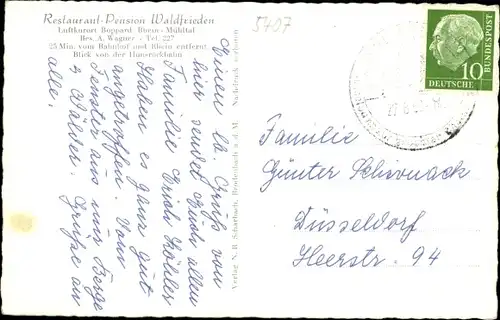 Restaurant-Pension Waldfrieden
Luftkurort Boppard Rhein-Mühltal
Bes. A. Wagner - Tel. 227
25 Min. vom Bahnhof und Rhein entfernt.
Blick von der Hunsrückbahn
5407
Einen lb. Gruß von
hier sendet Euch allen
Familie Erich Köhler
Haben es ganz gut
angetroffen. Vom
Fenster aus nur Berge
u. Wälder. Grüße an
alle.
Verlag N. B. Scharbach, Brodenbach a. d. M. Nachdruck verboten
DEUTSCHE
BUNDESPOST
10
Familie
Günter Schivnack
Düsseldorf
Heerstr. 94